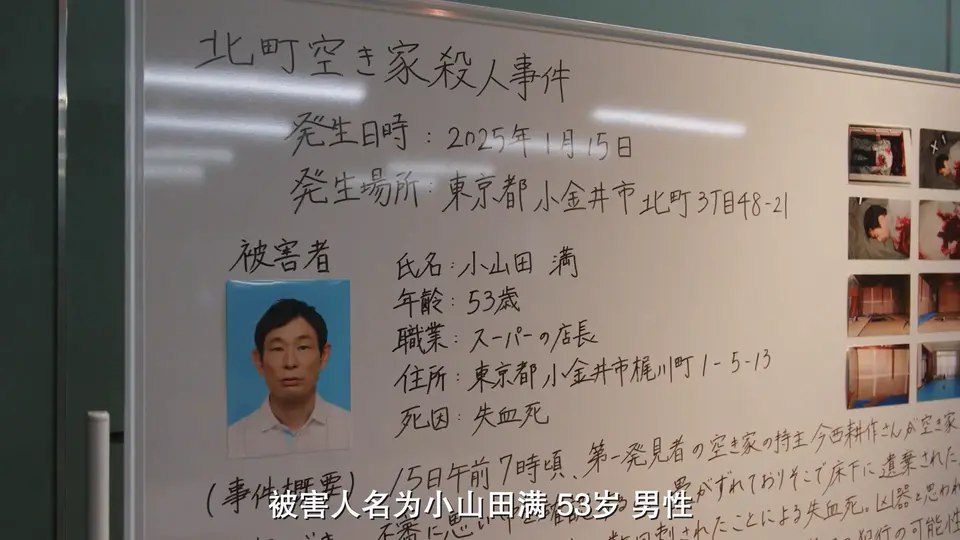 北町空き家殺人事件
発生日時：2025年1月15日
発生場所：東京都小金井市北町3丁目48-21
被害者
氏名：小山田 満
年齢：53歳
職業：スーパーの店長
住所：東京都小金井市梶川町1-5-13
死因：失血死
(事件概要) 15日午前7時頃、第一発見者の空き家の持主今西耕作さんが空き家
畳がずれておりそこで床下に遺棄された
不審に思い
刺されたことによる失血死。凶器と思われ
犯行の可能性
被害人名为小山田满 53岁 男性